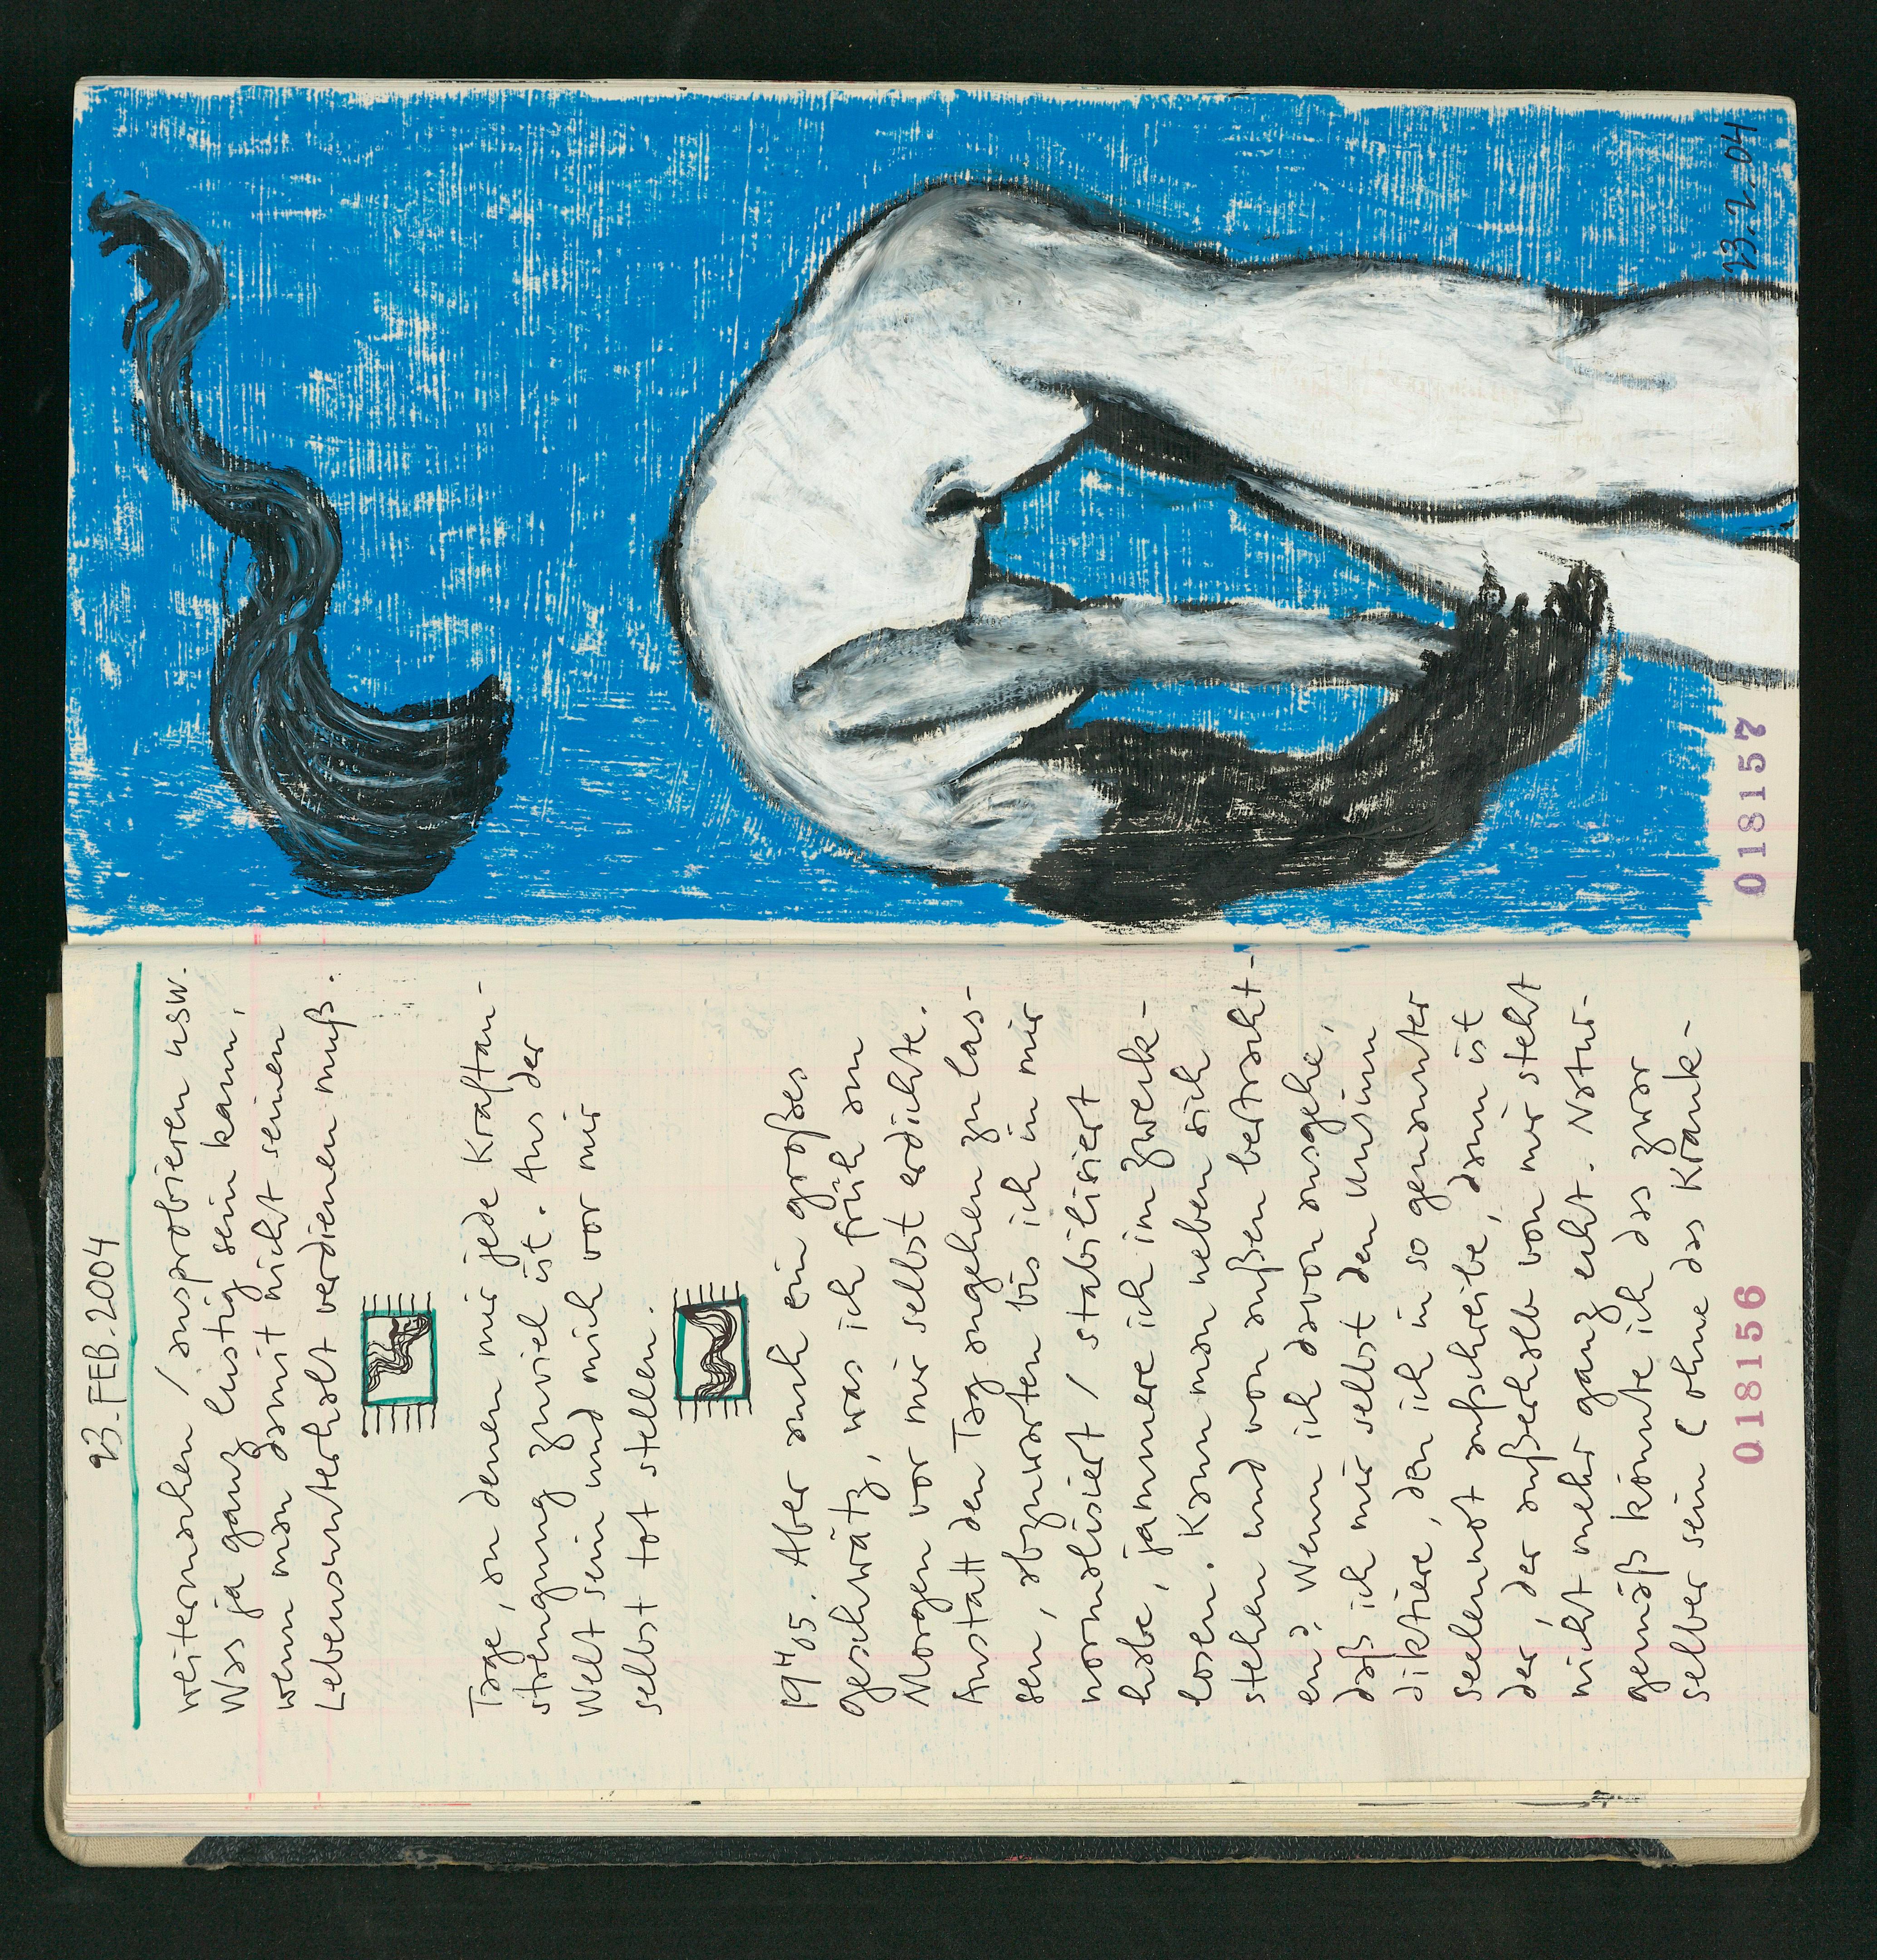 23. FEB. 2004
weitermachen / ausprobieren usw.
Was ja ganz lustig sein kann,
wenn man damit nicht seinen
Lebensunterhalt verdienen muß.
Tage, an denen mir jede Kraftan-
strengung zuviel ist. Aus der
Welt sein und mich vor mir
selbst tot stellen.
19H05. Aber auch ein großes
geschwätz, was ich früh am
Morgen vor mir selbst erdichte.
Anstatt den Tag angehen zu las-
sen, abzuwarten bis ich in mir
normalisiert / stabilisiert
habe, jammere ich im zweck-
losen. Kann man neben sich
stehen und von außen betracht-
en? Wenn ich davon ausgehe,
daß ich mir selbst den Unsinn
diktiere, den ich in so genannter
seelennot aufschreibe, dann ist
der, der außerhalb von mir steht
nicht mehr ganz echt. Natur-
gemäß könnte ich das zwar
selber sein (ohne das Krank-
018156
23.2.04
018157